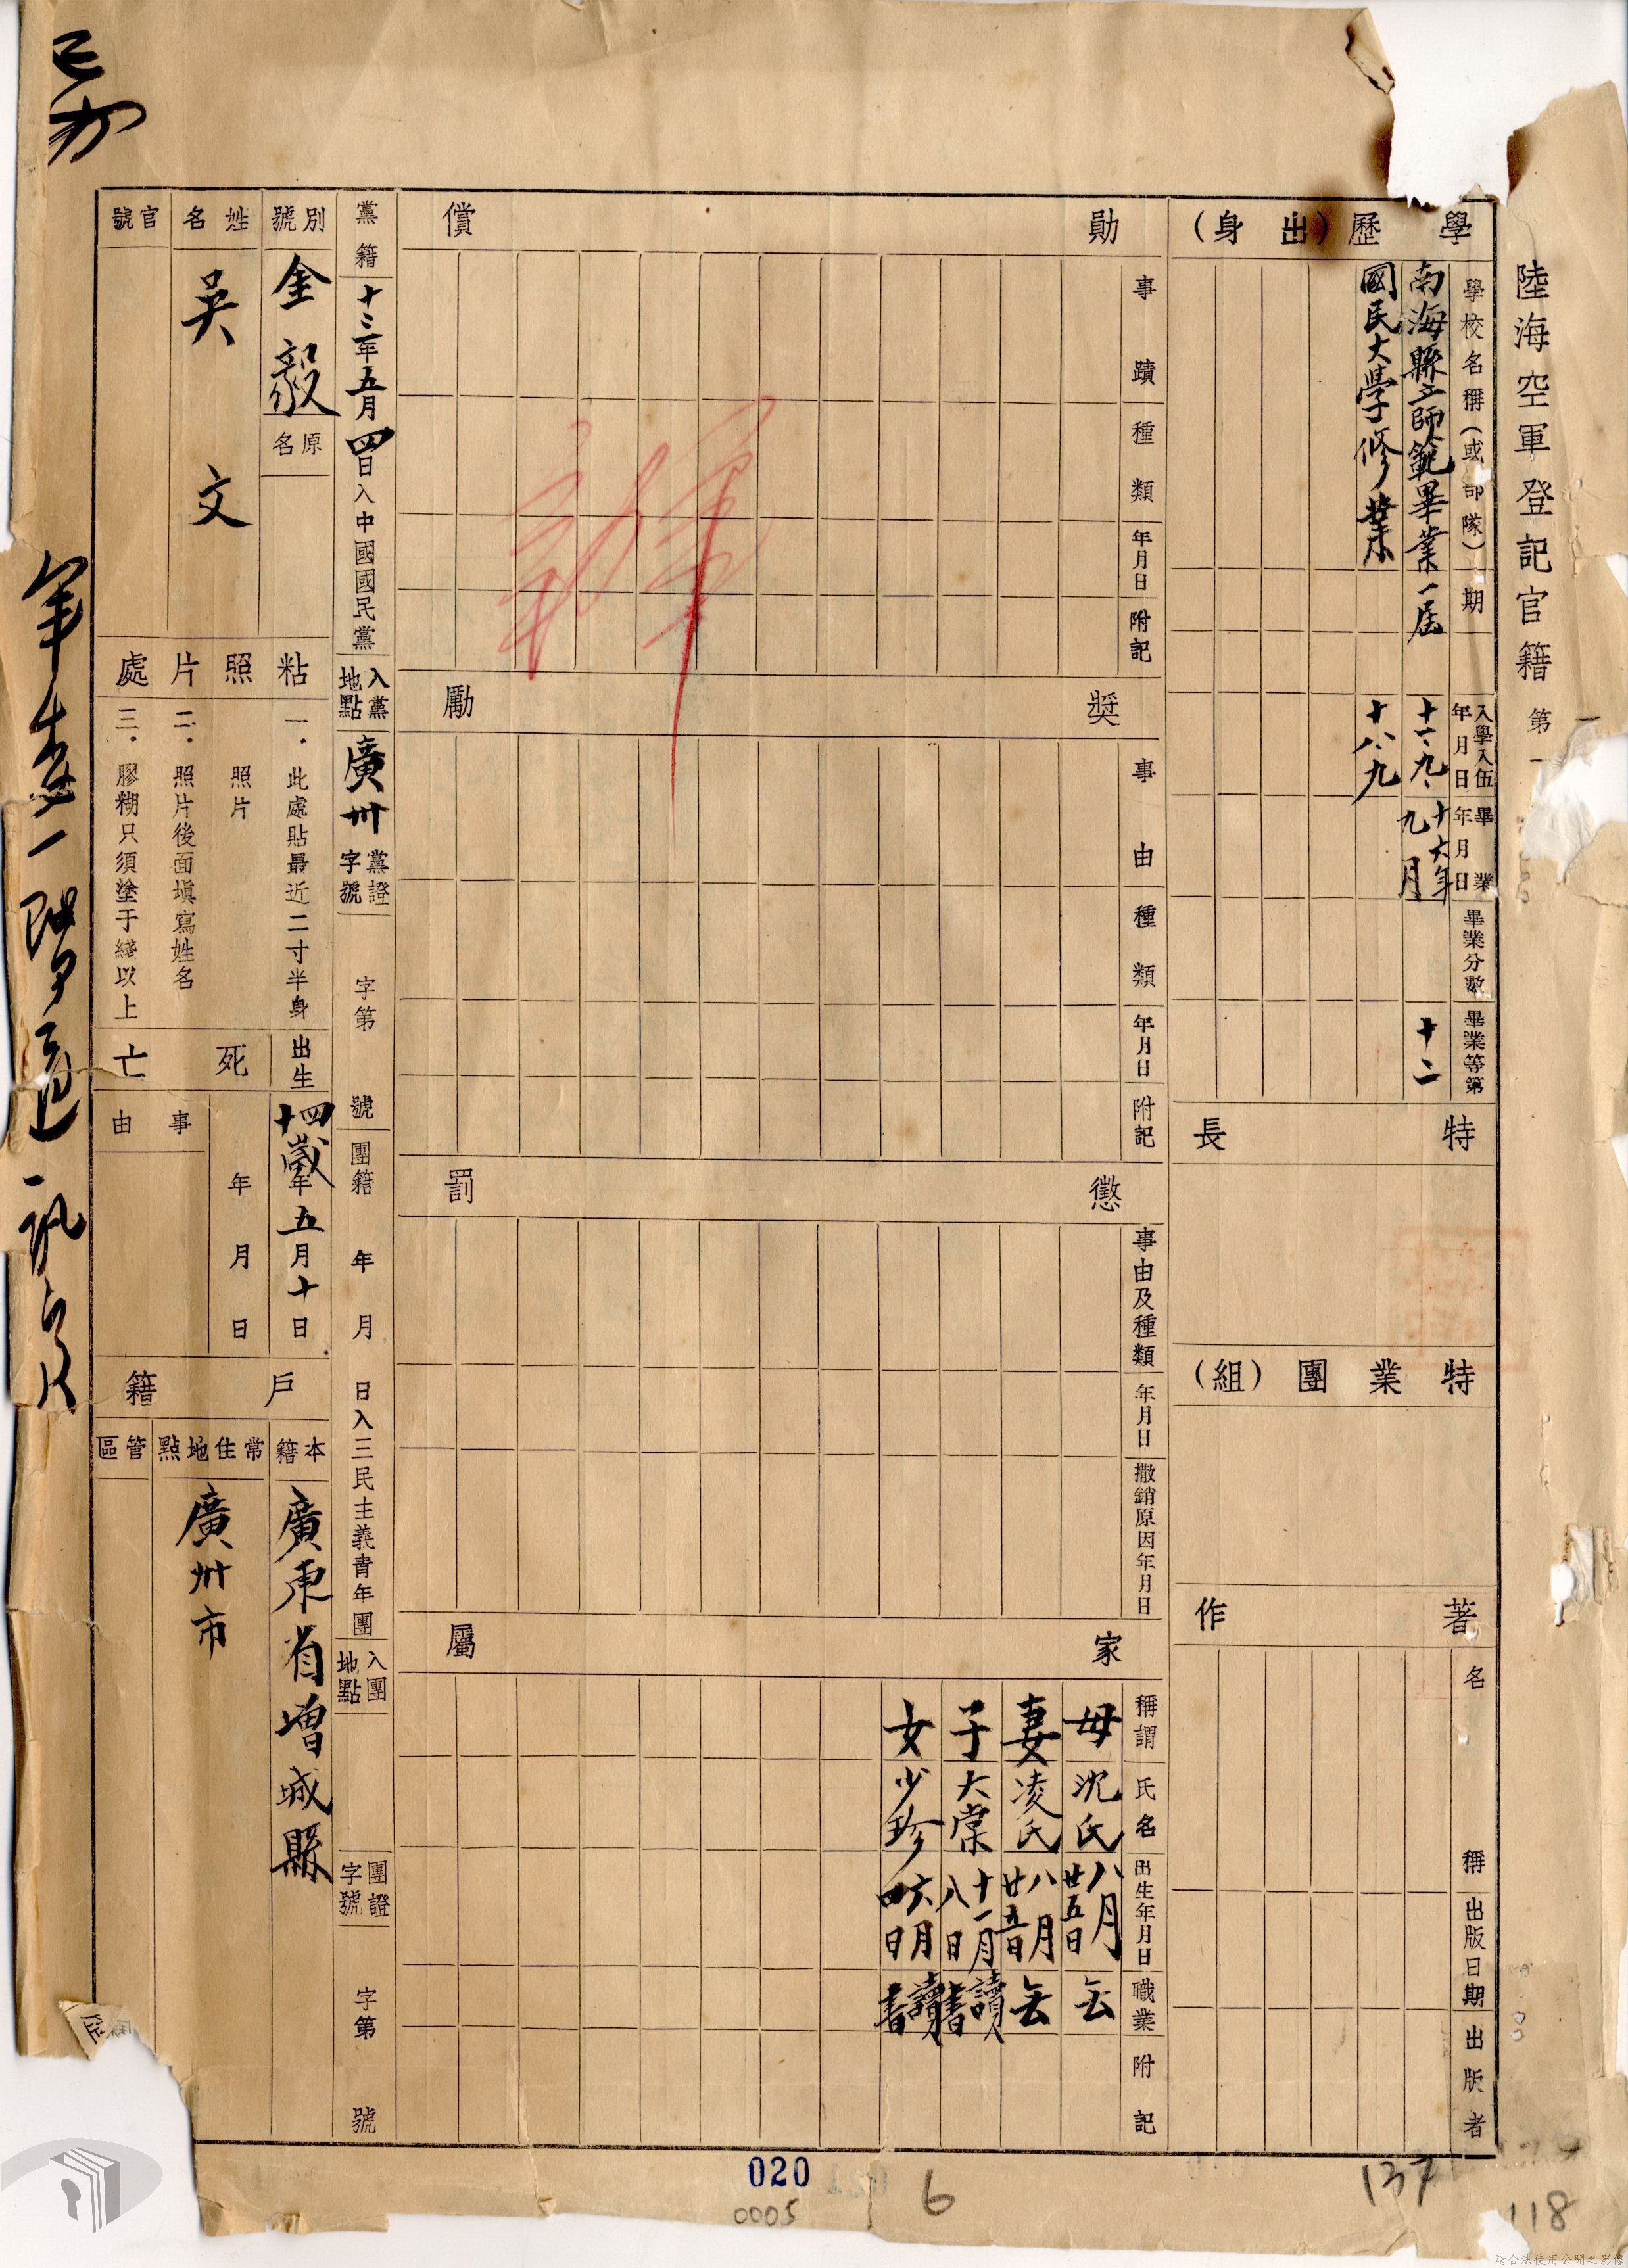 陸海空軍登記官籍 第一
學歷（出身）
學校名稱（或部隊）
期
入學入伍年月日
畢業年月日
畢業分數
畢業等第
南海縣立師範畢業
一屆
十一、九、
十六年九月
十二
國民大學修業
十八、九
特長
特業團（組）
著作
名稱
出版日期
出版者
勛償
事蹟
種類
年月日
附記
獎勵
事由
種類
年月日
附記
懲罰
事由及種類
年月日
撤銷原因年月日
家屬
稱謂
氏名
出生年月日
職業
附記
母
沈氏
八月廿五日
無
妻
凌氏
八月廿五日
無
子
大棠
十一月八日
讀書
女
少珍
六月四日
讀書
黨籍
十三年五月四日入中國國民黨
入黨地點
廣州
黨證字號
字第
號
團籍
年月日入三民主義青年團
入團地點
團證字號
字第
號
別號
金毅
原名
姓名
吳文
官號
粘照片處
一．此處貼最近二寸半身
照片
二．照片後面填寫姓名
三．膠糊只須塗于綫以上
出生
四十歲年五月十日
死亡
年月日
事由
戶籍
本籍
廣東省增城縣
常住地點
廣州市
管區
020
0005
6
137
118
請合法使用公開之影像